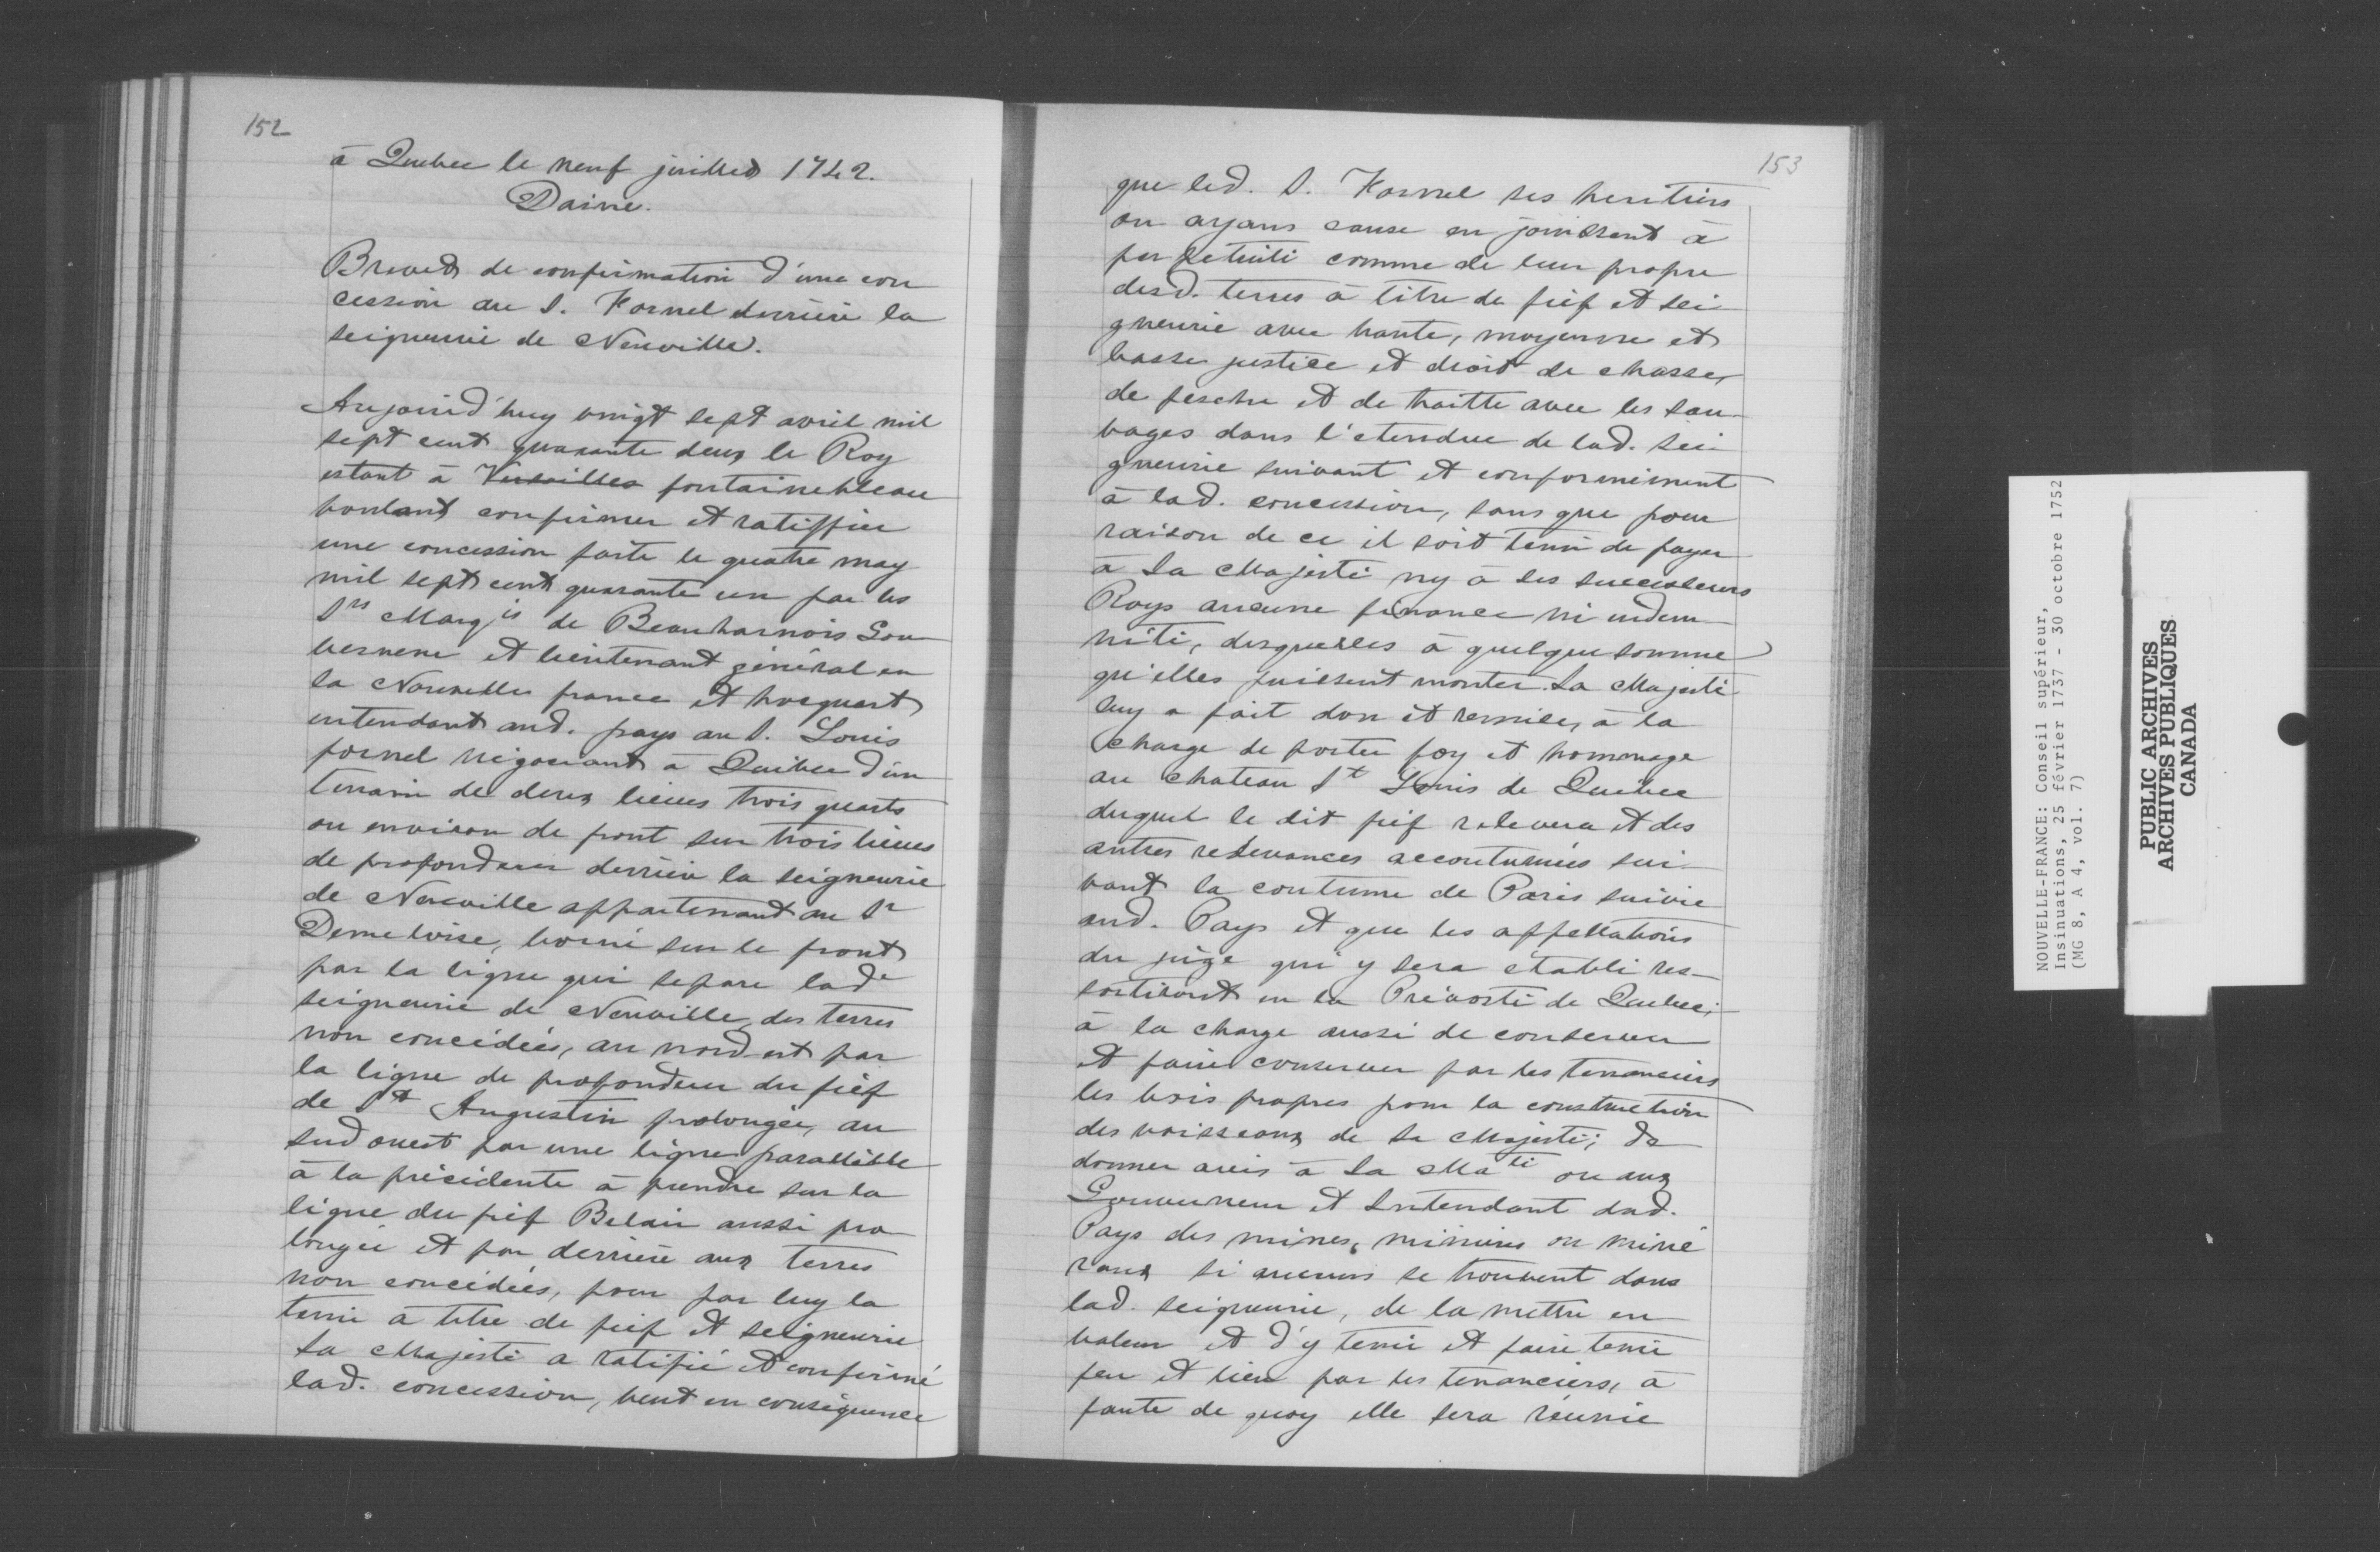 152
à Quebec le neuf juillet 1742.
Daine.
Brevet de confirmation d'une con
cession au S. Fornel derrière la
seigneurie de Neuville.
Aujourd'huy vingt sept avril mil
sept cent quarante deux le Roy
estant à Versailles fontainebleau
voulant confirmer et ratiffier
une concession faite le quatre may
mil sept cent quarante un par les
Srs Marqis de Beauharnois Gou
verneur et lieutenant général en
la Nouvelle france et hocquart
intendant aud. pays au S. Louis
fornel négociant à Québec d'un
terrain de deux lieues trois quarts
ou environ de front sur trois lieues
de profondeur derrière la seigneurie
de Neuville appartenant au Sr
Demeloise, borné sur le front
par la ligne qui separe lade
seigneurie de Neuville des terres
non concédées, au nord-est par
la ligne de profondeur du fief
de St Augustin prolongée, au
sud ouest par une ligne parallèlle
à la précédente à prendre sur la
ligne du fief Belair aussi pro
longée et par derrière aux terres
non concédées, pour par luy la
tenir à titre de fief et seigneurie
Sa Majesté a ratifié et confirmé
lad. concession, veut en conséquence
153
que led. S. Fornel ses heritiers
ou ayans cause en jouissent à
perpetuité comme de leur propre
desd. terres à titre de fief et sei
gneurie avec haute, moyenne et
basse justice et droit de chasse,
de pesche et de traitte avec les sau
vages dans l'etendue de lad. sei
gneurie suivant et conformément
à lad. concession, sans que pour
raison de ce il soit tenu de payer
à Sa Majesté ny à ses successeurs
Roys aucune finance ni indem
nité, desquelles à quelque somme
qu'elles puissent monter Sa Majesté
luy a fait don et remise, à la
charge de porter foy et hommage
au chateau St Louis de Québec
duquel le dit fief relevera et des
autres redevances accoutumées sui
vant la coutume de Paris suivie
aud. Pays et que les appellations
du juge qui y sera établi res-
sortiront en la Prévosté de Quebec;
à la charge aussi de conserver
et faire conserver par les tenanciers
les bois propres pour la construction
des vaisseaux de Sa Majesté; de
donner avis à Sa Maté ou aux
Gouverneur et Intendant dud.
Pays des mines, minières ou miné
raux si aucuns se trouvent dans
lad. seigneurie, de la mettre en
valeur et d'y tenir et faire tenir
feu et lieu par les tenanciers, à
faute de quoy elle sera réunie
NOUVELLE-FRANCE: Conseil supérieur,
Insinuations, 25 février 1737 - 30 octobre 1752
(MG 8, A 4, vol. 7)
PUBLIC ARCHIVES
ARCHIVES PUBLIQUES
CANADA